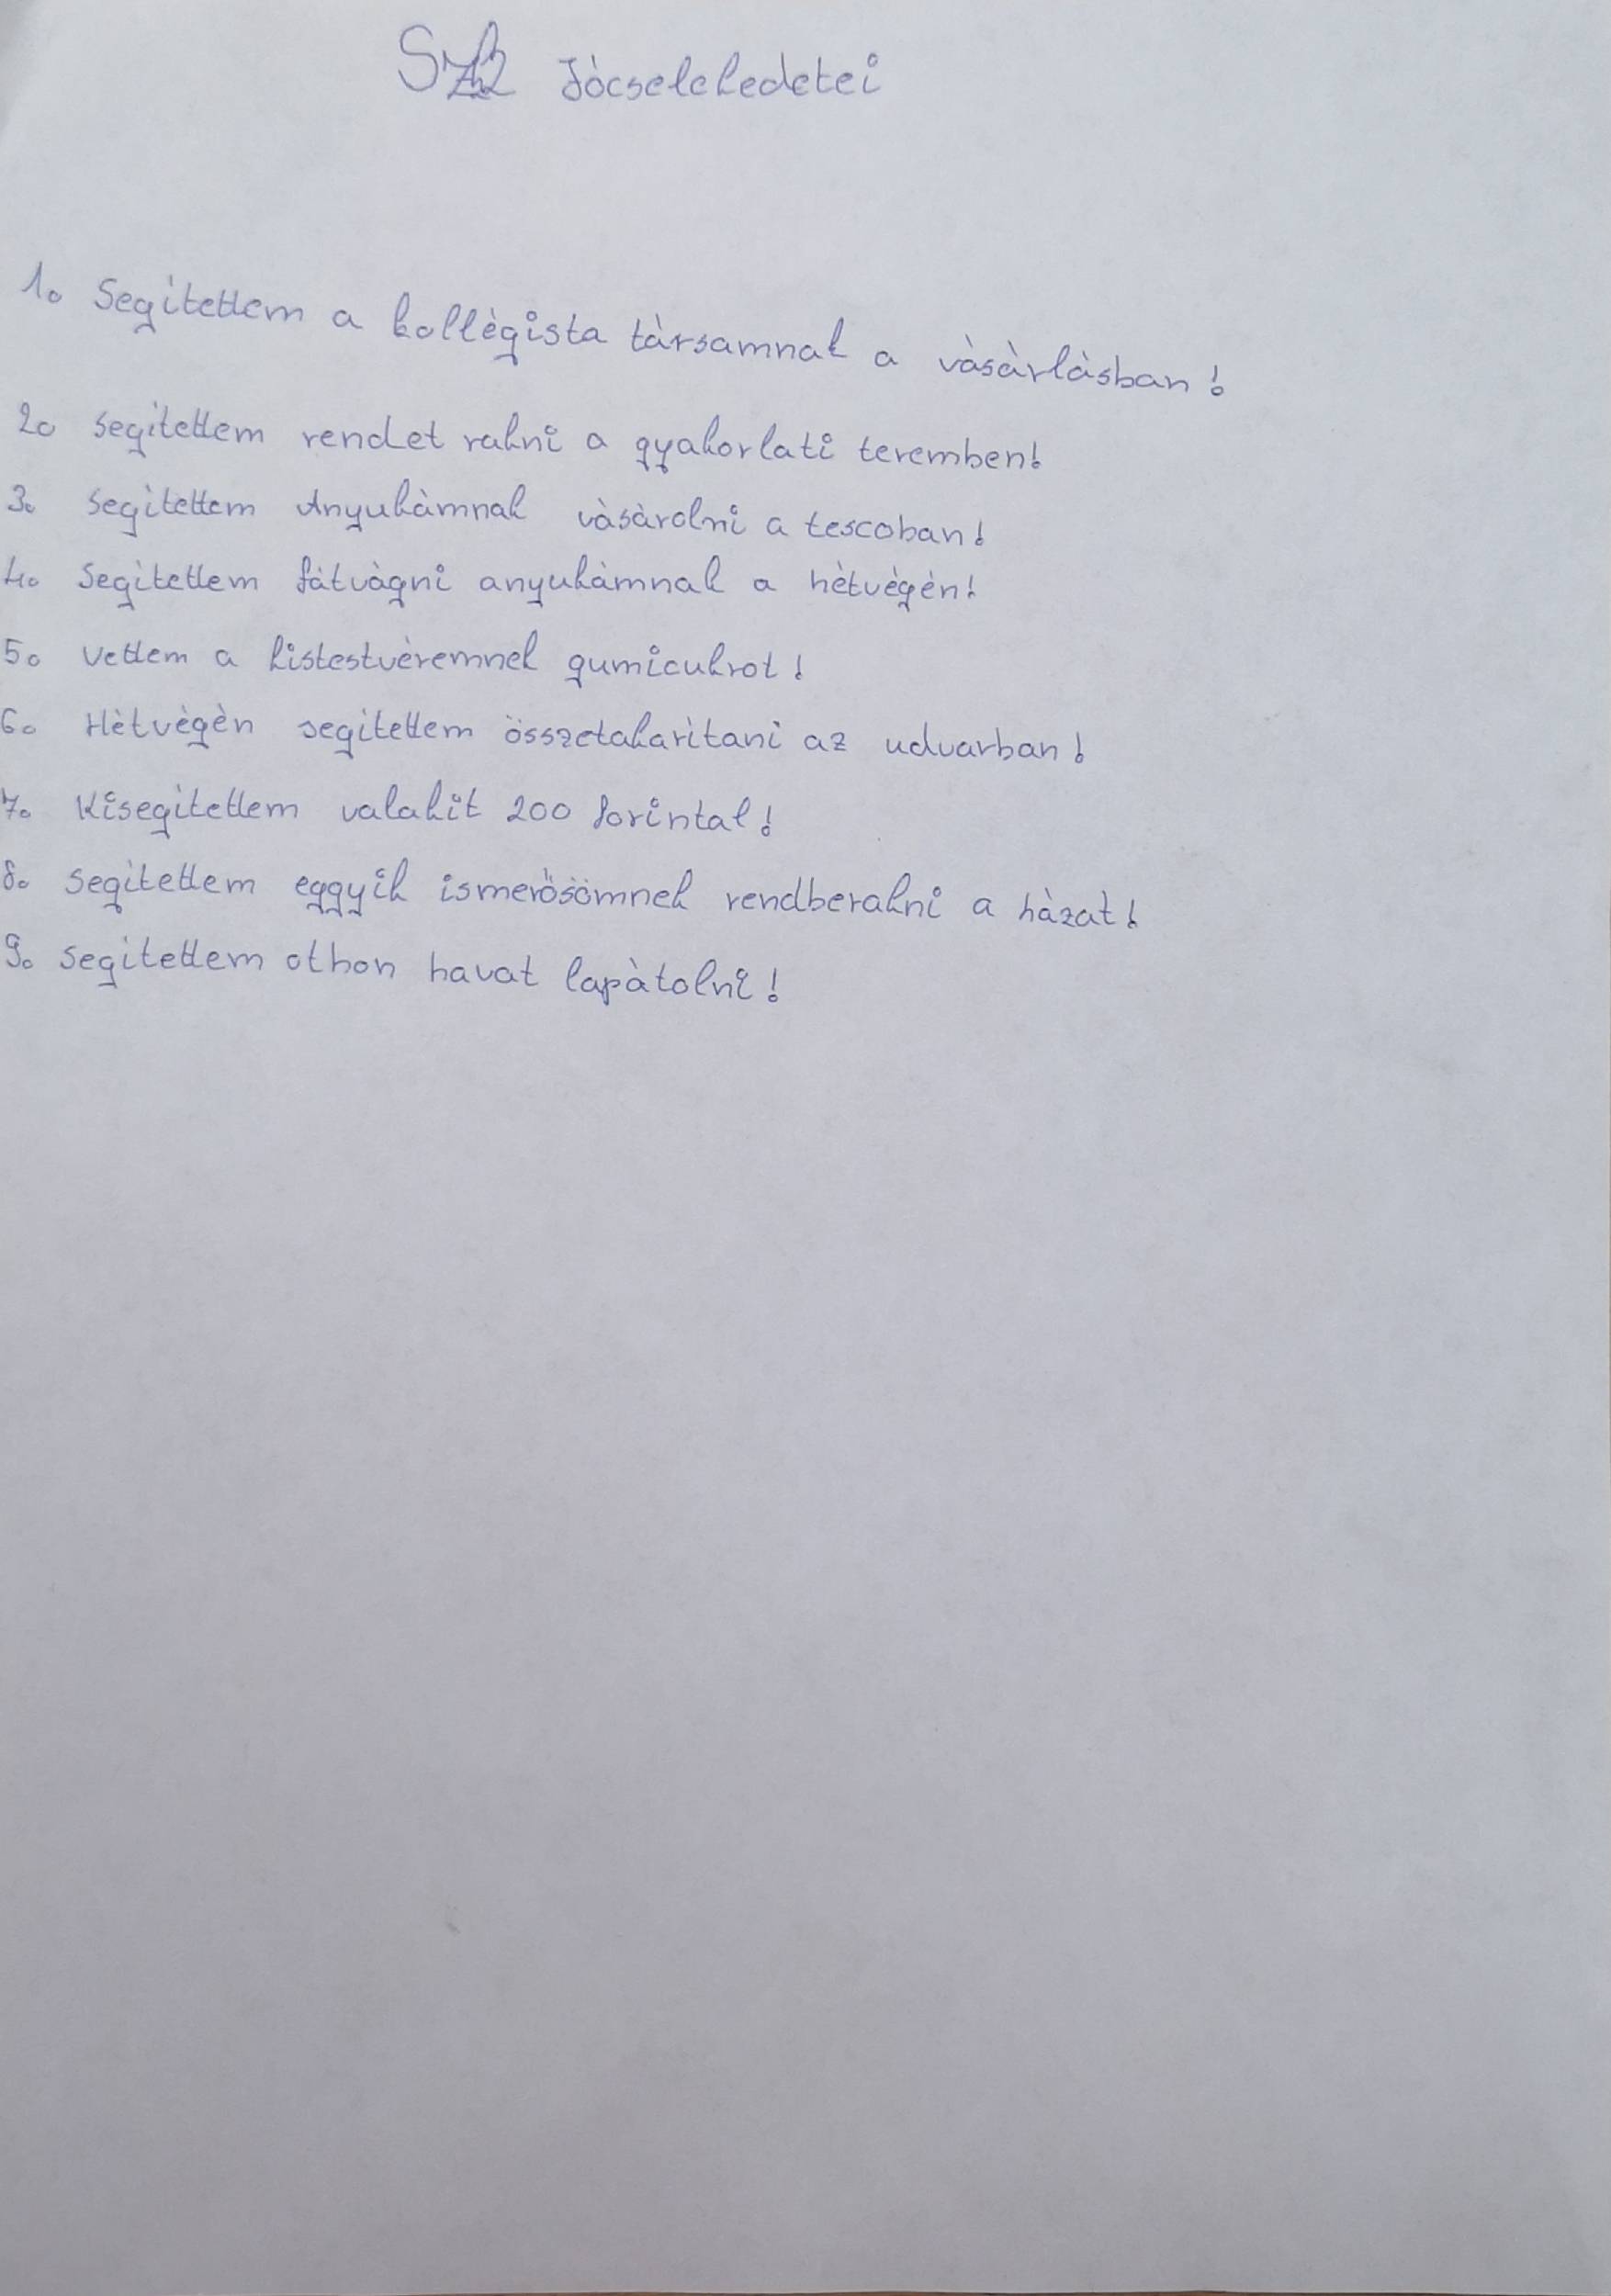 Jócselekedetei
1. Segitettem a kollègista tàrsamnak a vàsàrlàsban!
2. segitettem rendet rakni a gyakorlati teremben!
3. segitettem Anyukàmnak vàsàrolni a tescoban!
4. Segitettem fàtvàgni anyukàmnak a hètvègèn!
5. vettem a kistestvèremnek gumicukrot!
6. Hètvègèn segitettem összetakaritani az udvarban!
7. Kisegitettem valakit 200 forintal!
8. segitettem eggyik ismerősömnek rendberakni a hàzat!
9. segitettem othon havat lapàtolni!